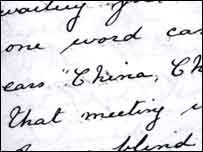 waiting
one word can
ears "China, Ch
That meeting
blind